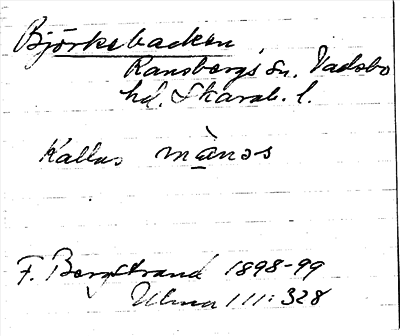 Björksbacken,
Ransbergs sn. Vadsbo
hd. Skarab. l.
Kallas mànəs
F. Bergstrand 1898-99
Ulma 111:328